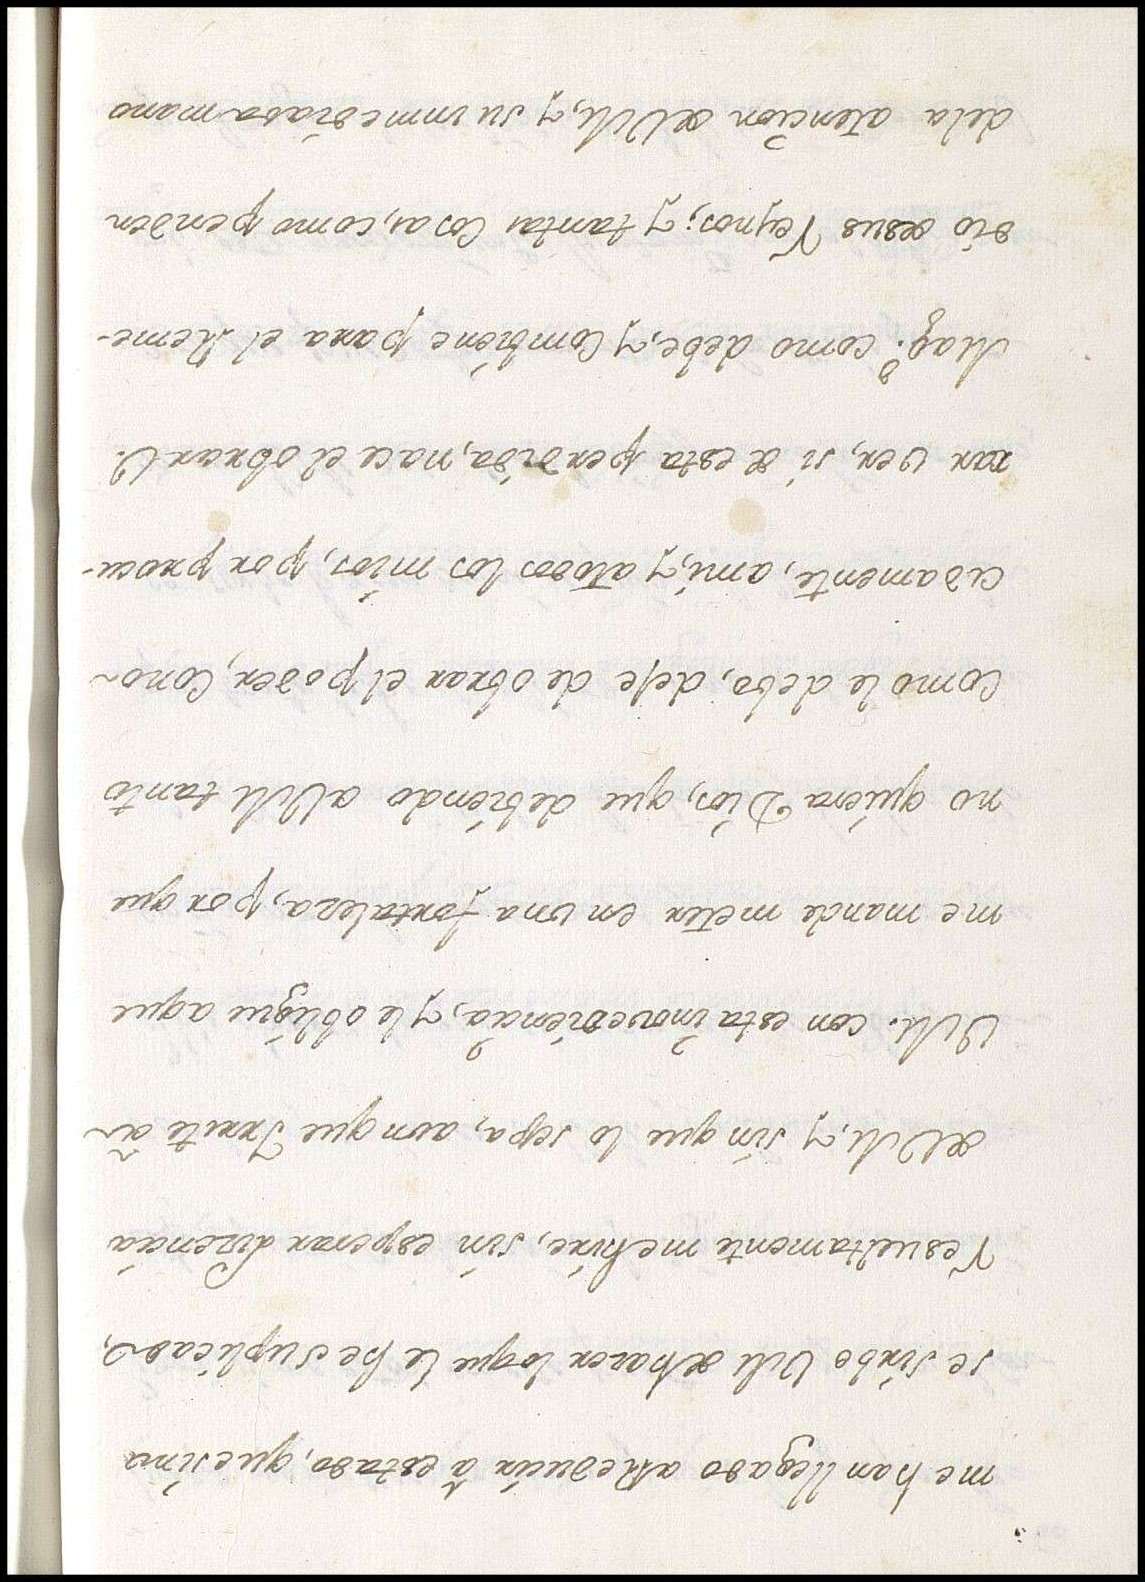 me han llegado a Reducir â estado, que sino
se sirbe VM de hacer lo que le he suplicado,
Resueltamente me hiré, sin esperar lizencia
de VM, y sin que lo sepa, aun que Irrite â
VM. con esta inovediencia, y le obligue a que
me mande meter en una fortaleza, por que
no quiera Dios, que debiendo a VM tanto
Como le debo, deje de obrar el poder, Cono-
cidamente, ami, y atodos los mios, por procu-
rar ver, si de esta perdida, nace el obrar V.
Magd. como debe, y Combiene para el Reme-
dio de sus Reynos; y tantas Cosas, como penden
dela atencion de VM, y su inmediada mano